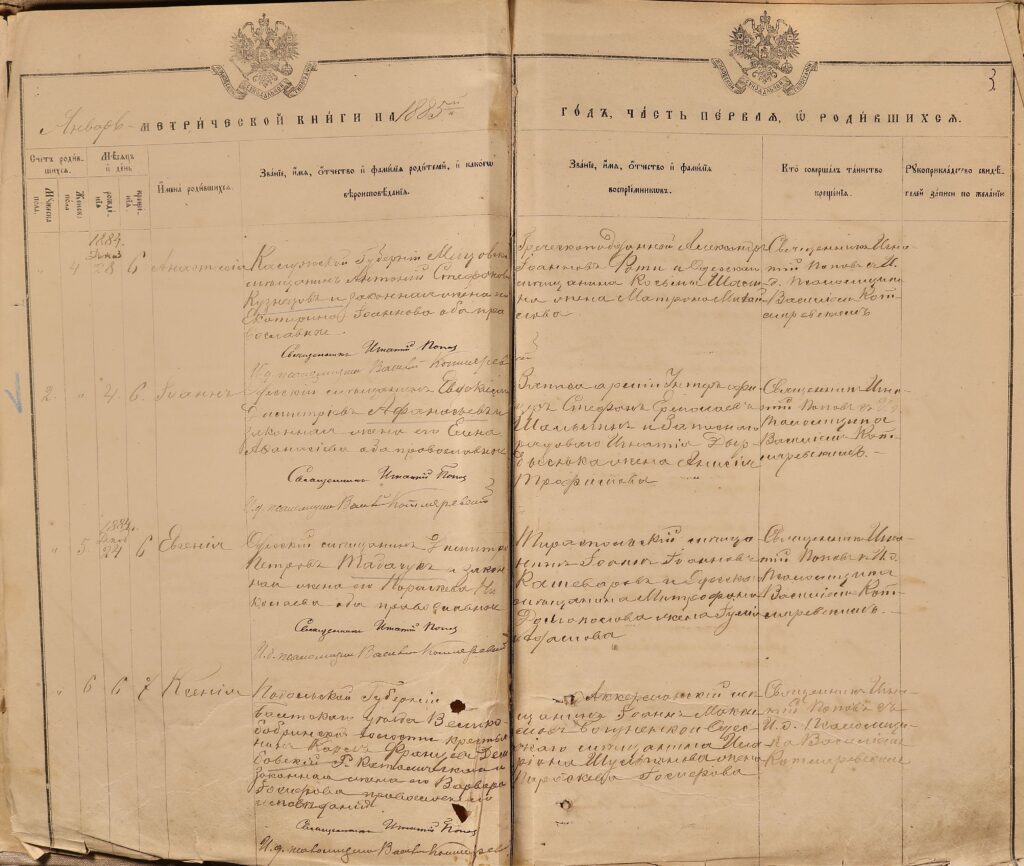 3
Январь МЕТРИ́ЧЕСКОЙ КНИ́ГИ НА 1885й
ГО́ДЪ, ЧА́СТЬ ПЕ́РВАЯ, Ѿ РОДИ́ВШИХСЯ.
Счетъ родив-
шихся.
Мѣсяцъ
и день
Мужеска
пола.
Женска
пола.
рожде-
нія
креще-
нія.
Имена родившихся.
Званіе, имя, отчество и фамилія родителей, и какого
вѣроисповѣданія.
Званіе, имя, отчество и фамилія
воспріемниковъ.
Кто совершалъ таинство
крещенія.
Рукоприкладство свидѣ-
телей записи по желанію
1884.
Декаб
4 28 6 Анастасія
Калужской Губерніи
мѣщанинъ Антоній Стефановъ
Кузнецовъ и законная жена его
Екатерина Іоаннова оба пра
вославные.
Священникъ Игнатій Поповъ
И.д. псаломщика Василій Котляревскій
Греческоподданной Александръ
Іоанновъ и Одесскаго
мѣщанина Косьмы
на жена Матрона Михай
лова
Священникъ Игна
тій Поповъ съ И.
д. Псаломщика
Василіемъ Кот
ляревскимъ
2. 4. 6. Іоаннъ
Одесскій мѣщанинъ Евдокимъ
Димитріевъ Афанасьевъ и
законная жена его Елена
Афанасіева оба православные
Священникъ Игнатій Поповъ
И.д. псаломщика Василій Котляревскій
Стефанъ Ермолаевъ
и Запаснаго
рядоваго Игнатія
жена Анисія
Трофимова
Священникъ Игна
тій Поповъ съ И.д.
Псаломщика
Василіемъ Кот
ляревскимъ.
1884.
Декаб
5. 24 6 Евгенія
Одесскій мѣщанинъ Димитрій
Петровъ Табачукъ и закон
ная жена его Параскева Ни
колаева оба православные
Священникъ Игнатій Поповъ
И.д. псаломщика Василій Котляревскій
Тираспольскій мѣща
нинъ Іоаннъ Іоанновъ
Кашеваровъ и Одесскаго
мѣщанина Митрофана
жена
Священникъ Игна
тій Поповъ съ И.д.
Псаломщика
Василіемъ Кот
ляревскимъ.
6 6 7 Ксенія
Подольской Губерніи
Балтскаго уѣзда Велико
бобринской волости крестья
нинъ Карлъ Францевъ
Р. Католическаго и
законная жена его Варвара
Іосифова православнаго
исповѣданія
Священникъ Игнатій Поповъ
И.д. псаломщика Василій Котляревскій
Аккерманскій мѣ
щанинъ Іоаннъ Макси
мовъ и Одес
скаго мѣщанина
жена
Параскева Іосифова
Священникъ Игна
тій Поповъ съ
И.д. Псаломщи
ка Василіемъ
Котляревскимъ